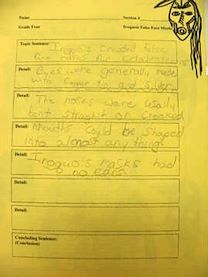 Name Section #
Grade Four Iroquois False Face Masks
Topic Sentence:
Iroquois created false
face masks for celebrations
Detail:
Eyes were generally made
with copper tin and silver
Detail:
The noses were usually
bent straight or crooked
Detail:
Mouths could be shaped
into almost anything
Detail:
Iroquois masks had
no ears
Detail:
Detail:
Concluding Sentence:
(Conclusion)